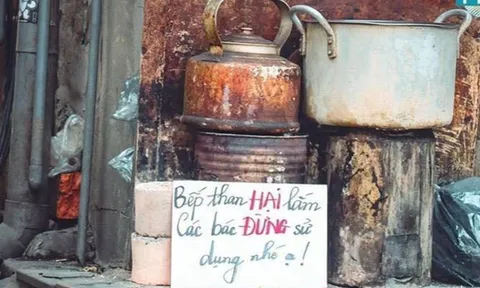 Bếp than HẠI lắm
Các bác ĐỪNG sử
dụng nhé ạ!